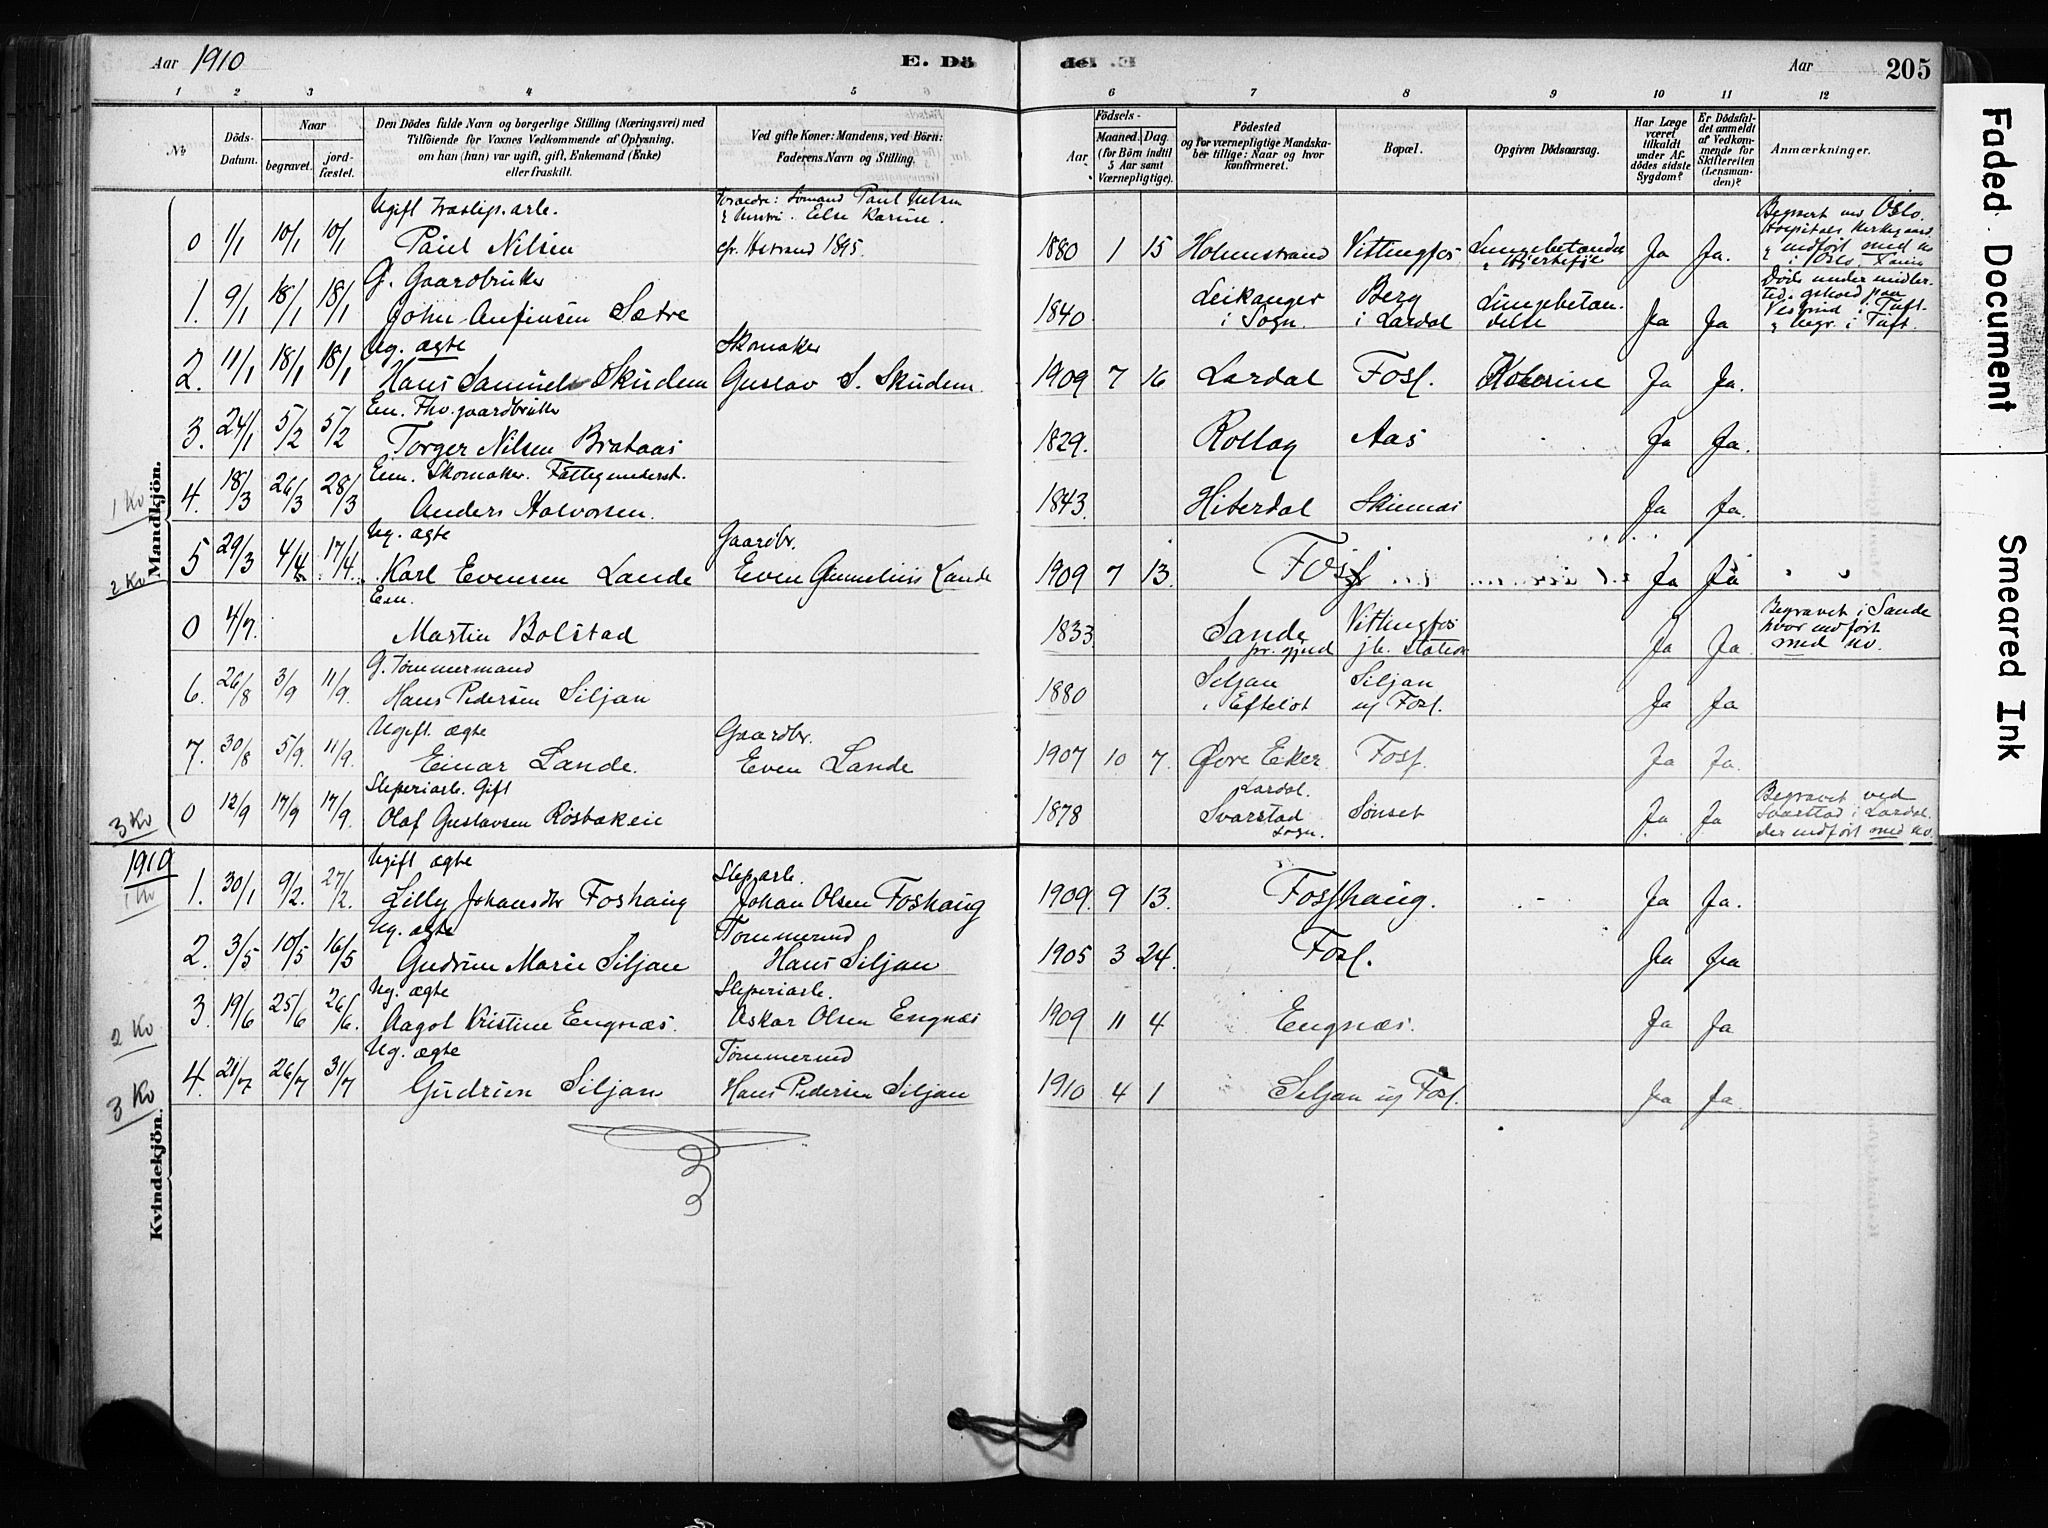 Aar 1910
E. Dö
de. E
Aar
205
1 2 3 4 5 6 7 8 9 10 11 12
No
Döds-Datum.
Naar
begravet.
jord-fæstet.
Den Dödes fulde Navn og borgerlige Stilling (Næringsvei) med
Tilföiende for Voxnes Vedkommende af Oplysning,
om han (hun) var ugift, gift, Enkemand (Enke)
eller fraskilt.
Ved gifte Koner: Mandens, ved Börn:
Faderens Navn og Stilling.
Födsels-
Aar.
Maaned.
Dag.
(for Börn indtil
5 Aar samt
Værnepligtige).
Födested
og for værnepligtige Mandska-
ber tillige: Naar og hvor
konfirmeret.
Bopæl.
Opgiven Dödsaarsag.
Har Læge
været
tilkaldt
under Af-
dödes sidste
Sygdom?
Er Dödsfal-
det anmeldt
af Vedkom-
mende for
Skifteretten
(Lensman-
den)?
Anmærkninger.
Mandkjön.
Ugift Træslip.arb. Sømand Paul Nilsen
Else Karine.
0 1/1 10/1 10/1 Paul Nilsen 1895. 1880 1 15 Holmestrand Vittingfos Ja Ja.
Oslo.
G. Gaardbruker
1. 9/1 18/1 18/1 John Anfinsen Sætre 1840 Leikanger i Sogn. Berg i Lardal Lungebetændelse Ja Ja
Ug. ægte Skomaker
2. 11/1 18/1 18/1 Hans Samuel Skudem Gustav S. Skudem. 1909 7 16 Lardal Fosf. Ja Ja.
Em. Fhv. gaardbruker
3. 24/1 5/2 5/2 Torger Nilsen Brataas 1829. Rollag Aas Ja Ja.
1 Kv
Em. Skomaker. Fattigunderst.
4. 18/3 26/3 28/3 Anders Halvorsen. 1843. Hiterdal Ja Ja.
Ug. ægte Gaardbr.
2 Kv
5 29/3 4/4 17/4. Karl Evensen Lande Even Gunnelius Lande 1909 7 13. Ja Ja
Em.
0 4/7. Martin Bolstad 1833. Sande Vittingfos Station Ja Ja. Begravet i Sande
hvor indført
med no.
G. Tømmermand
6. 26/8 3/9 11/9. Hans Pedersen Siljan 1880 Siljan i Efteløt Siljan u/ Fosf. Ja Ja
Ugift. ægte Gaardbr.
7. 30/8 5/9. 11/9. Einar Lande. Even Lande 1907 10 7. Øvre Eker Fosf. Ja Ja.
Sliperiarb. Gift
3 Kv
0 12/9 17/9 17/9. Olaf Gustavsen Røsbakeie 1878 Lardal. Svarstad Sogn. Sønset Ja Ja Begravet ved
Svarstad i Lardal.
der indført med no.
1910
1 Kv
Ugift ægte Sliparb.
1. 30/1 9/2. 27/2. Lilly Johansdtr Foshaug Johan Olsen Foshaug 1909. 9 13. Fosfhaug. Ja Ja.
Ug. ægte Tømmermd
2. 3/5 10/5 16/5 Gudrun Marie Siljan Hans Siljan 1905 3 24. Fosf. Ja Ja
Ug. ægte Sliperiarb.
2 Kv
3. 19/6 25/6 26/6. Aagot Kristine Engnæs. Oskar Olsen Engnæs 1909 11 4 Engnæs. Ja Ja
Ug. ægte Tømmermd
3 Kv
4. 21/7 26/7 31/7 Gudrun Siljan Hans Pedersen Siljan 1910 4 1 Siljan u/ Fosf. Ja Ja.
Kvindekjön.
Faded Document
Smeared Ink